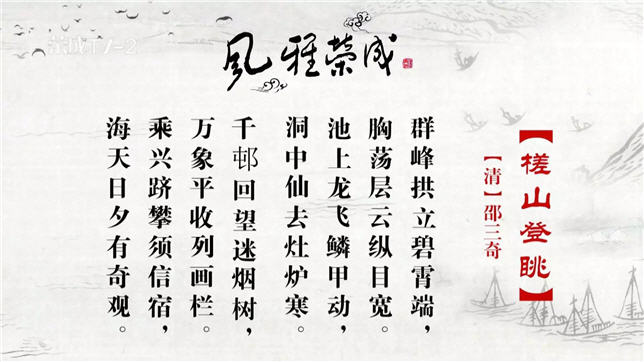 荣成TV-2
風雅荣成
【槎山登眺】
【清】邵三奇
群峰拱立碧霄端，
胸荡层云纵目宽。
池上龙飞鳞甲动，
洞中仙去灶炉寒。
千邨回望迷烟树，
万象平收列画栏。
乘兴跻攀须信宿，
海天日夕有奇观。